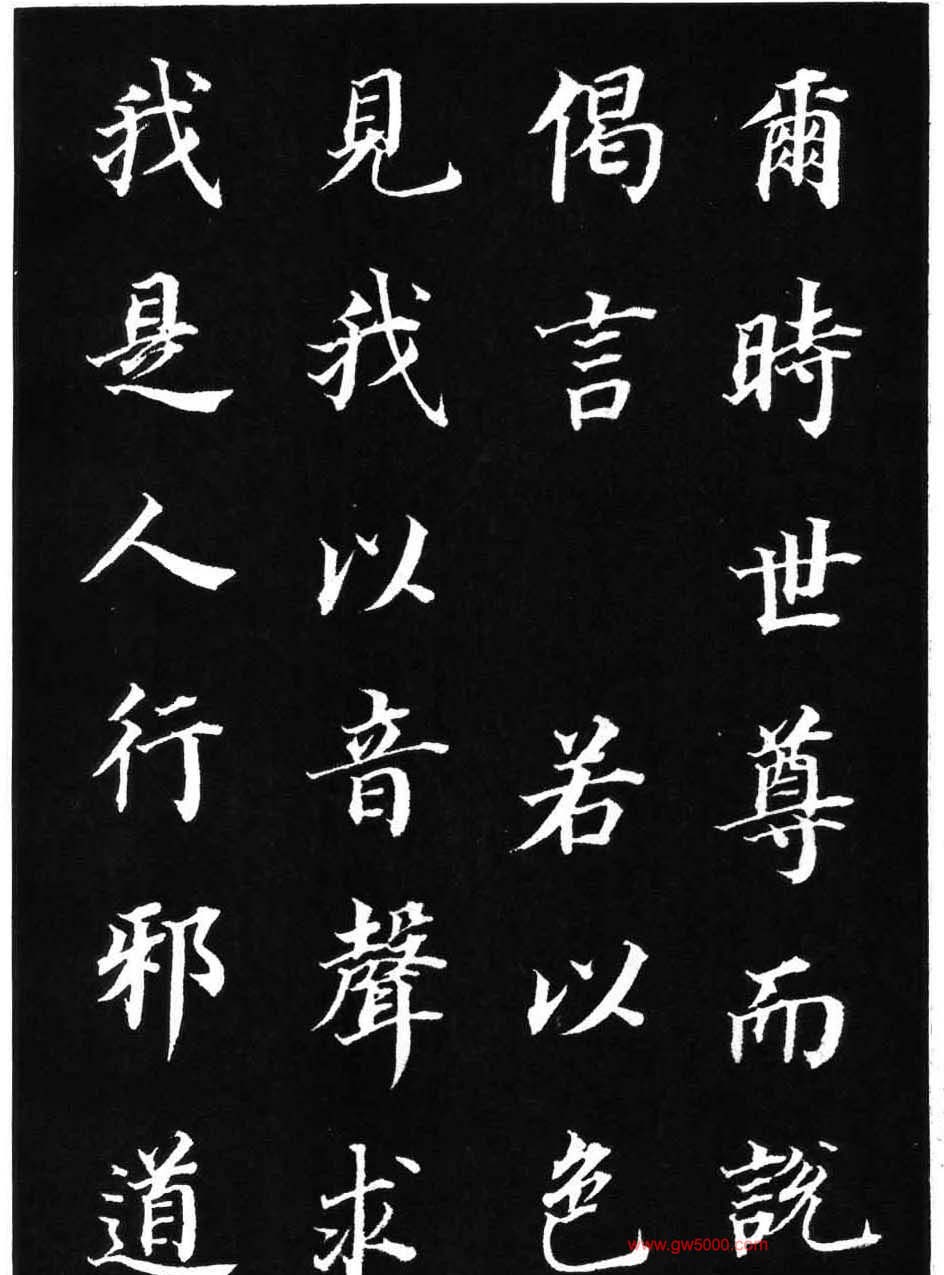 爾時世尊而說
偈言 若以色
見我以音聲求
我是人行邪道
www.gw5000.com